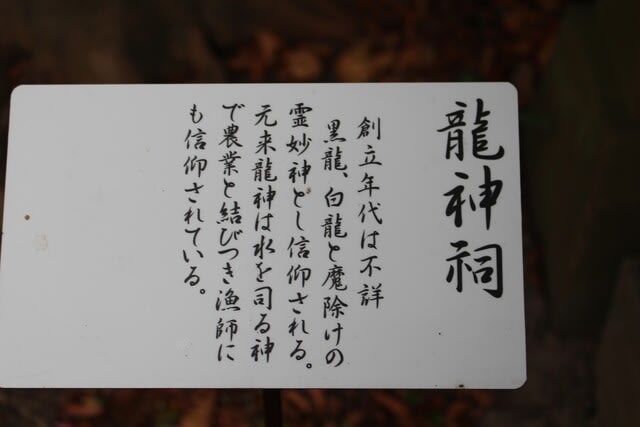 龍神祠
創立年代は不詳
黒龍、白龍と魔除けの
霊妙神とし信仰される。
元来龍神は水を司る神
で農業と結びつき漁師に
も信仰されている。